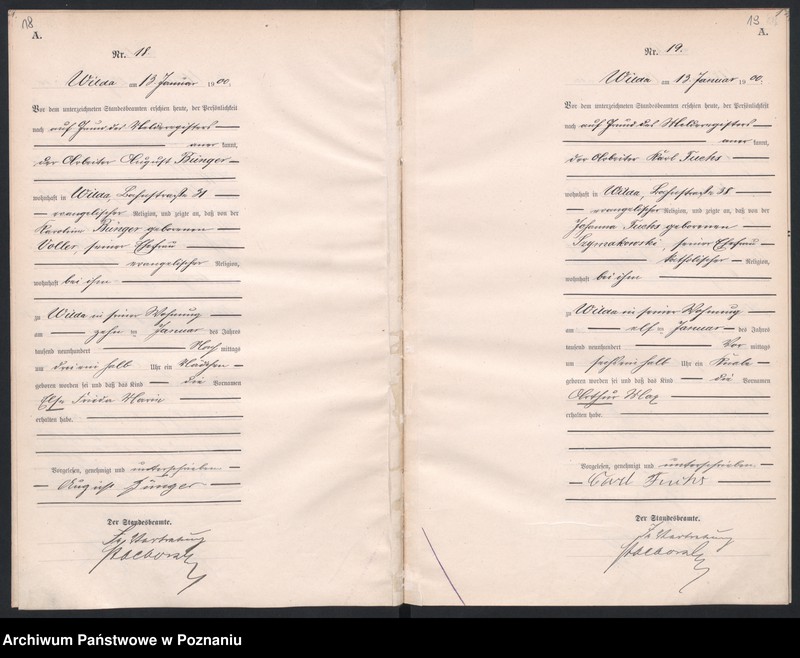 18
A.
Nr. 18.
Wilda am 13 Januar 1900.
Vor dem unterzeichneten Standesbeamten erschien heute, der Persönlichkeit
nach auf Grund des Melderegisters
aner kannt,
der Arbeiter August Bünger
wohnhaft in Wilda, Bahnstraße 31
evangelischer Religion, und zeigte an, daß von der
Karoline Bünger geborenen
Voller, seiner Ehefrau
evangelischer Religion,
wohnhaft bei ihm
zu Wilda in seiner Wohnung
am zehn ten Januar des Jahres
tausend neunhundert Nach mittags
um dreieinhalb Uhr ein Mädchen
geboren worden sei und daß das Kind die Vornamen
Else Frieda Marie
erhalten habe.
Vorgelesen, genehmigt und unterschrieben
August Bünger
Der Standesbeamte.
In Vertretung
19
A.
Nr. 19.
Wilda am 13 Januar 1900.
Vor dem unterzeichneten Standesbeamten erschien heute, der Persönlichkeit
nach auf Grund des Melderegisters
aner kannt,
der Arbeiter Karl Fuchs
wohnhaft in Wilda, Bahnstraße 38
evangelischer Religion, und zeigte an, daß von der
Johanna Fuchs geborenen
Szymakowski, seiner Ehefrau
katholischer Religion,
wohnhaft bei ihm
zu Wilda in seiner Wohnung
am elf ten Januar des Jahres
tausend neunhundert Vor mittags
um sechseinhalb Uhr ein Knabe
geboren worden sei und daß das Kind die Vornamen
Arthur Max
erhalten habe.
Vorgelesen, genehmigt und unterschrieben
Carl Fuchs
Der Standesbeamte.
In Vertretung
Archiwum Państwowe w Poznaniu